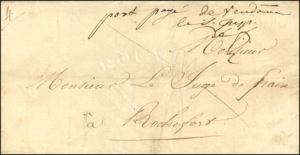 port payé de Vendome
le
de
Monsieur
Monsieur Le Juge de Paix
à Rochefort